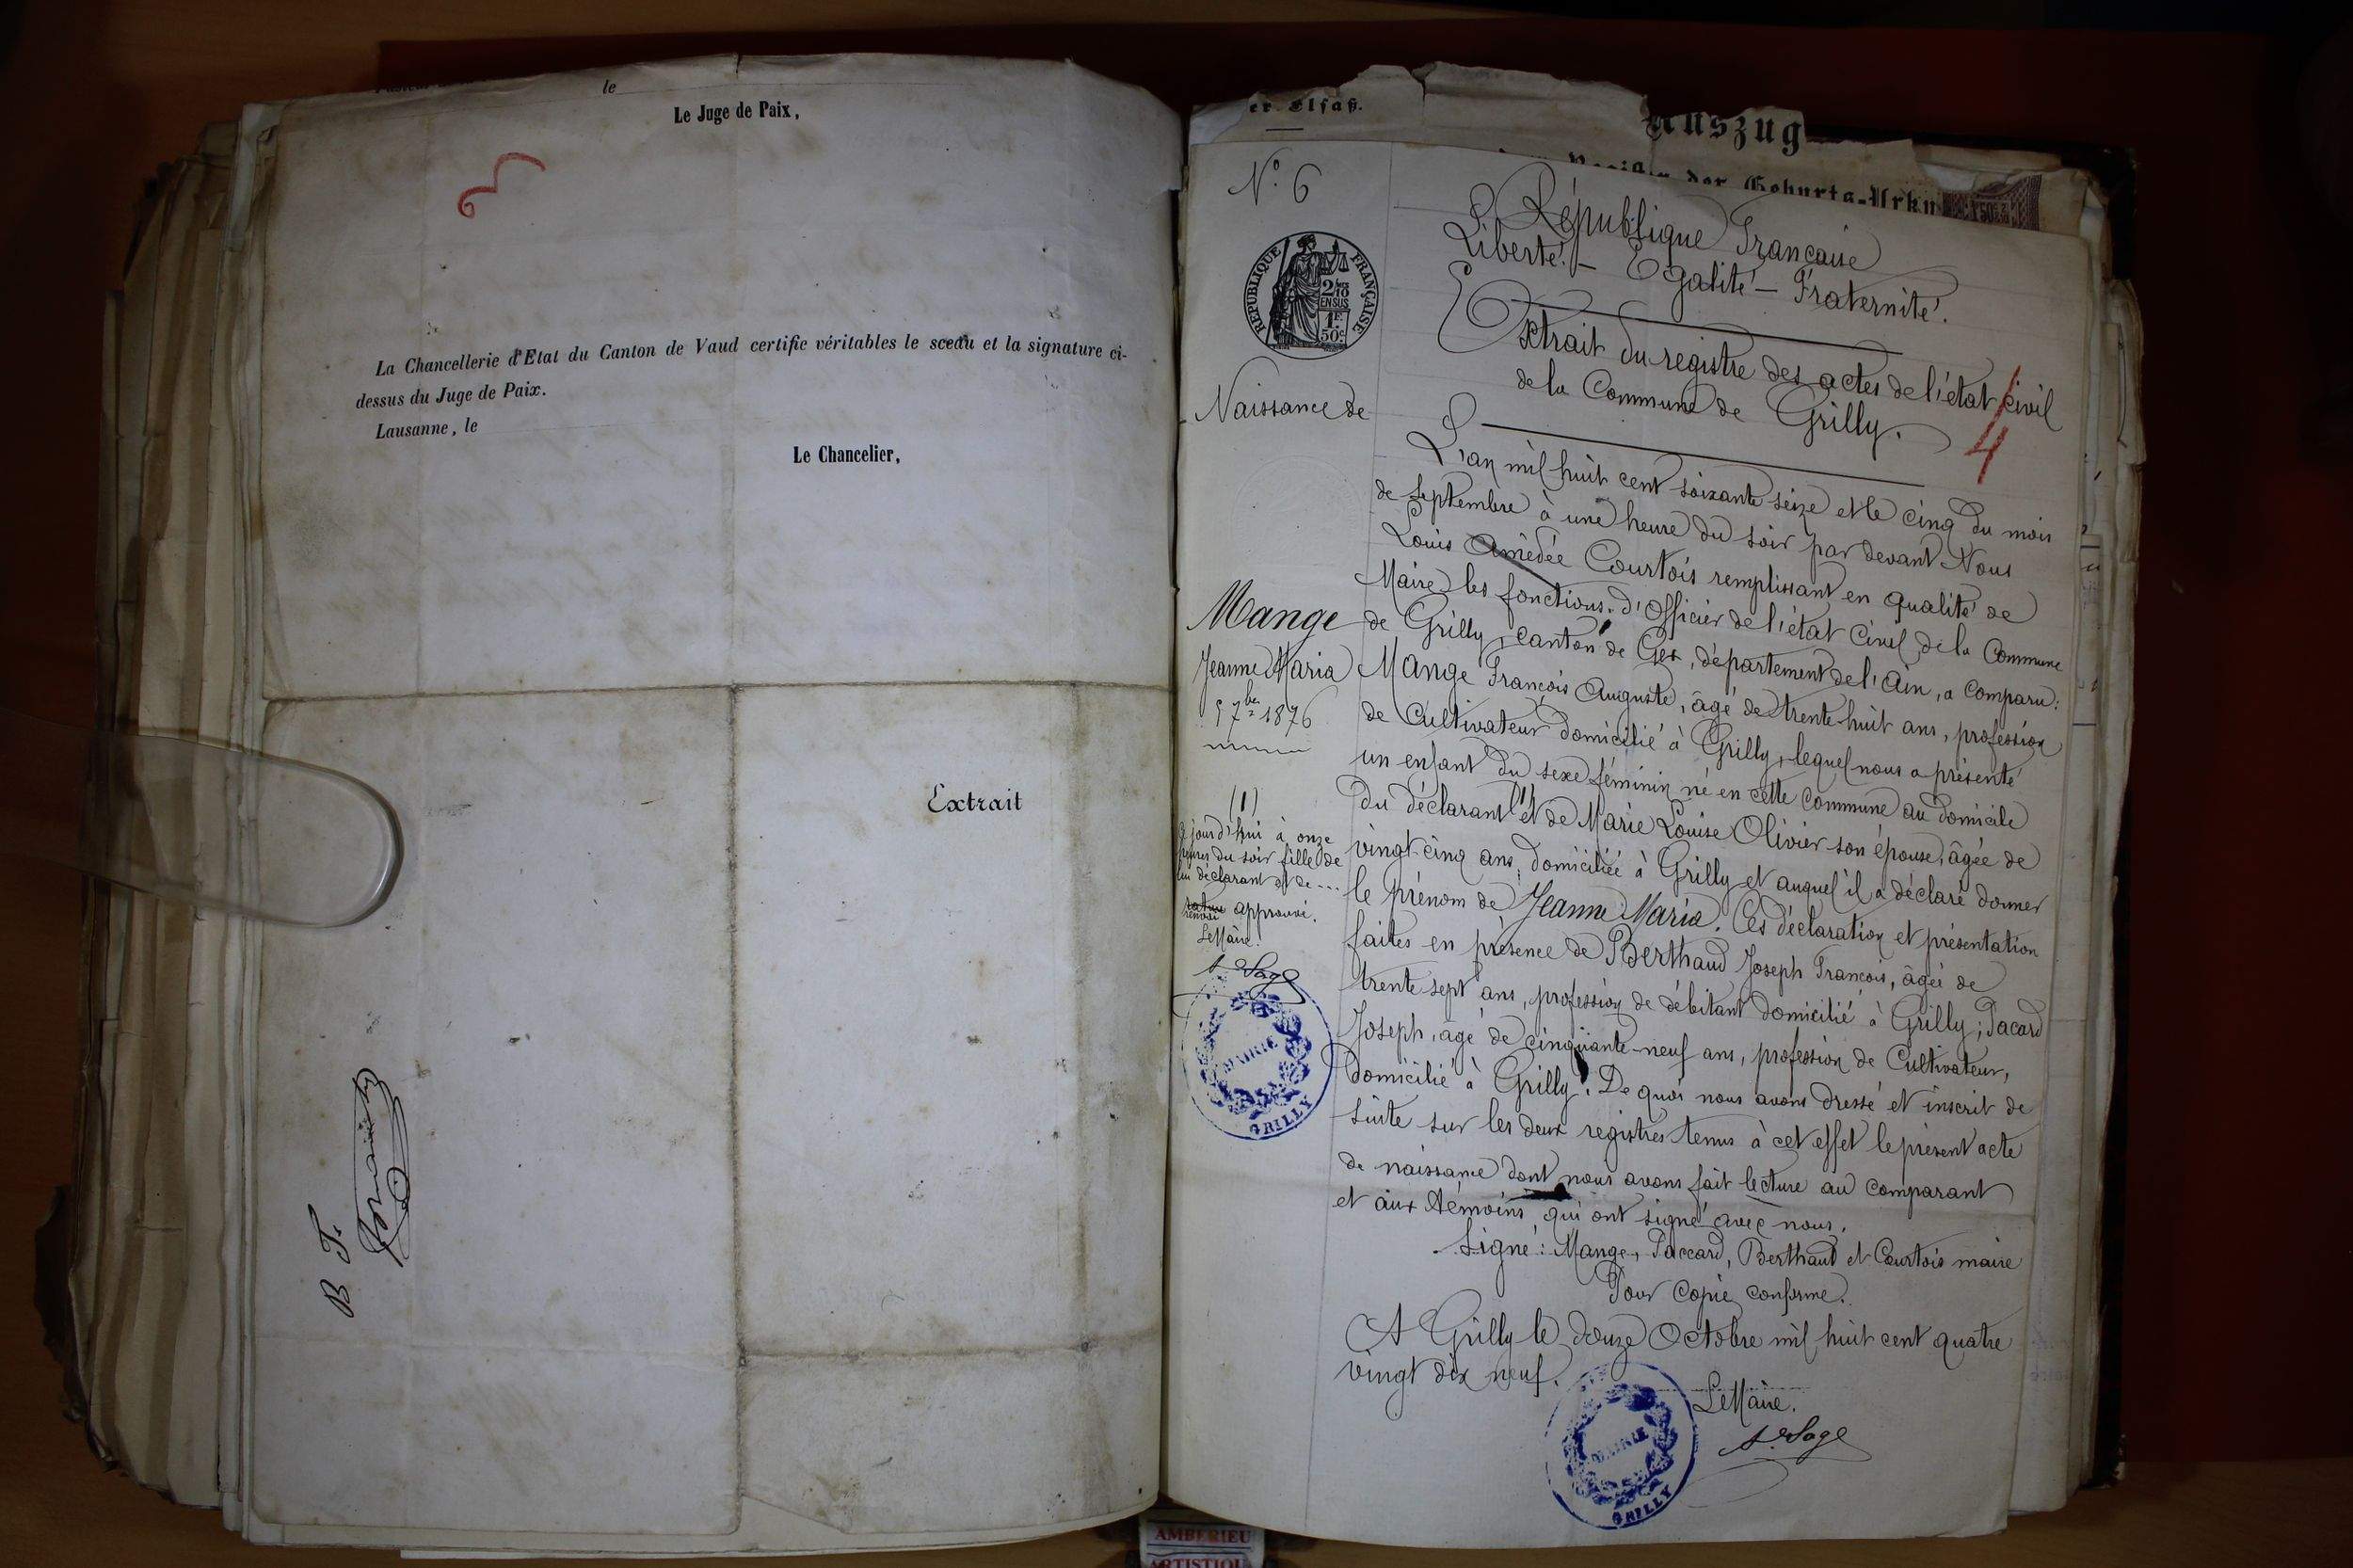 le
Le Juge de Paix,
3
La Chancellerie d'Etat du Canton de Vaud certifie véritables le sceau et la signature ci-
dessus du Juge de Paix.
Lausanne, le
Le Chancelier,
Extrait
B T.
er Elsaß.
Auszug
der Geburts-Urku
N° 6
REPUBLIQUE FRANÇAISE
2/10
EN SUS
1F
50c
République Française
Liberté - Egalité - Fraternité.
Extrait du registre des actes de l'état civil
de la Commune de Grilly.
4
Naissance de
Mange
Jeanne Maria
5 7bre 1876
L'an mil huit cent soixante seize et le cinq du mois
de Septembre à une heure du soir par devant Nous
Louis Amédée Courtois remplissant en qualité de
Maire les fonctions d'Officier de l'état Civil de la Commune
de Grilly, canton de Gex, département de l'Ain, a comparu:
Mange François Auguste, âgé de trente-huit ans, profession
de Cultivateur domicilié à Grilly, lequel nous a présenté
un enfant du sexe féminin né en cette Commune au domicile
du déclarant (1) et de Marie Louise Olivier son épouse, âgée de
vingt-cinq ans, domiciliée à Grilly et auquel il a déclaré donner
le prénom de Jeanne Maria. Ces déclaration et présentation
faites en présence de Berthaud Joseph François, âgé de
trente sept ans, profession de débitant domicilié à Grilly; Pacard
Joseph, âgé de cinquante-neuf ans, profession de Cultivateur,
domicilié à Grilly. De quoi nous avons dressé et inscrit de
suite sur les deux registres tenus à cet effet le présent acte
de naissance dont nous avons fait lecture au comparant
et aux témoins qui ont signé avec nous.
Signé: Mange, Paccard, Berthaud et Courtois maire
Pour Copie conforme.
A Grilly le douze Octobre mil huit cent quatre
vingt dix neuf.
Le Maire.
(1)
Ce jourd'hui à onze
heures du soir fille de
lui déclarant et de ...
renvoi approuvé.
Le Maire.
MAIRIE
GRILLY
MAIRIE
GRILLY
AMBERIEU